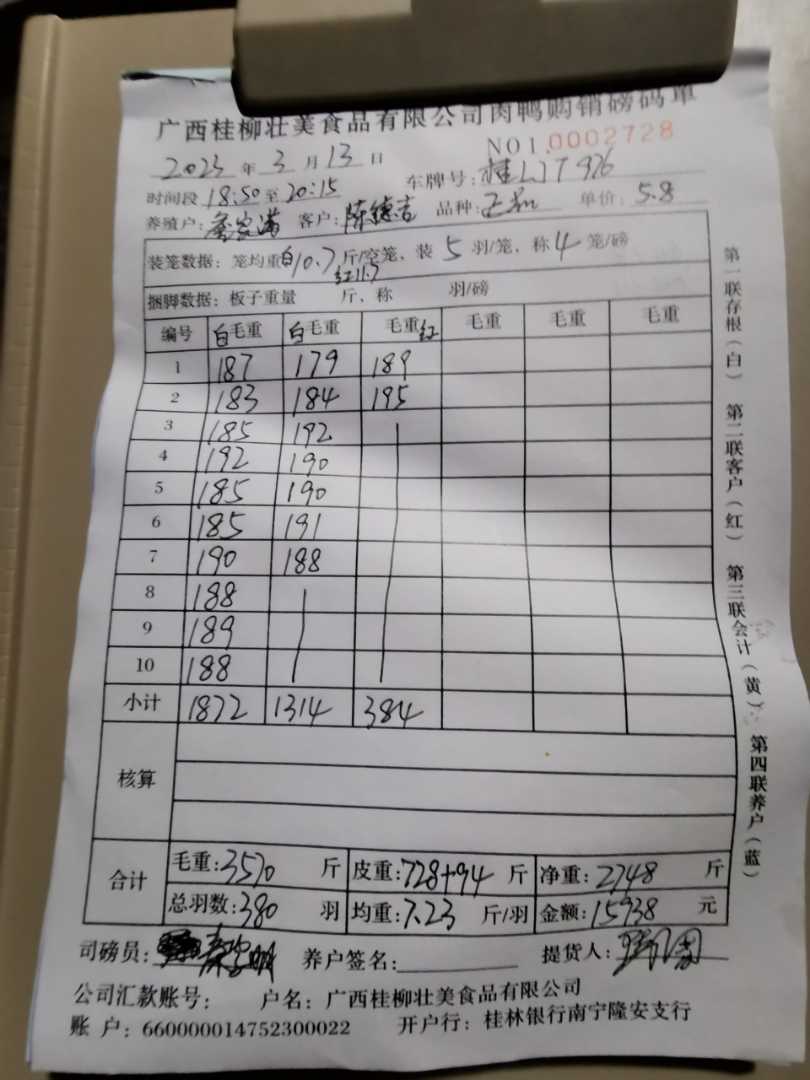 广西桂柳壮美食品有限公司肉鸭购销磅码单
NO1.0002728
2023年3月13日 车牌号:桂LJT926
时间段18:50至20:15
养殖户: 客户:陈德吉 品种: 单价:5.8
装笼数据: 笼均重白10.7斤/空笼、装5羽/笼、称4笼/磅
红11.7
捆脚数据: 板子重量 斤、称 羽/磅
编号 白毛重 白毛重 毛重红 毛重 毛重 毛重
1 187 179 189
2 183 184 195
3 185 192
4 192 190
5 185 190
6 185 191
7 190 188
8 188
9 189
10 188
小计 1872 1314 384
核算
合计 毛重:3570 斤 皮重:728+94 斤 净重:2748 斤
总羽数:380 羽 均重:7.23 斤/羽 金额:15938 元
司磅员: 养户签名: 提货人:
公司汇款账号: 户名:广西桂柳壮美食品有限公司
账户:660000014752300022 开户行:桂林银行南宁隆安支行
第一联存根(白) 第二联客户(红) 第三联会计(黄) 第四联养户(蓝)